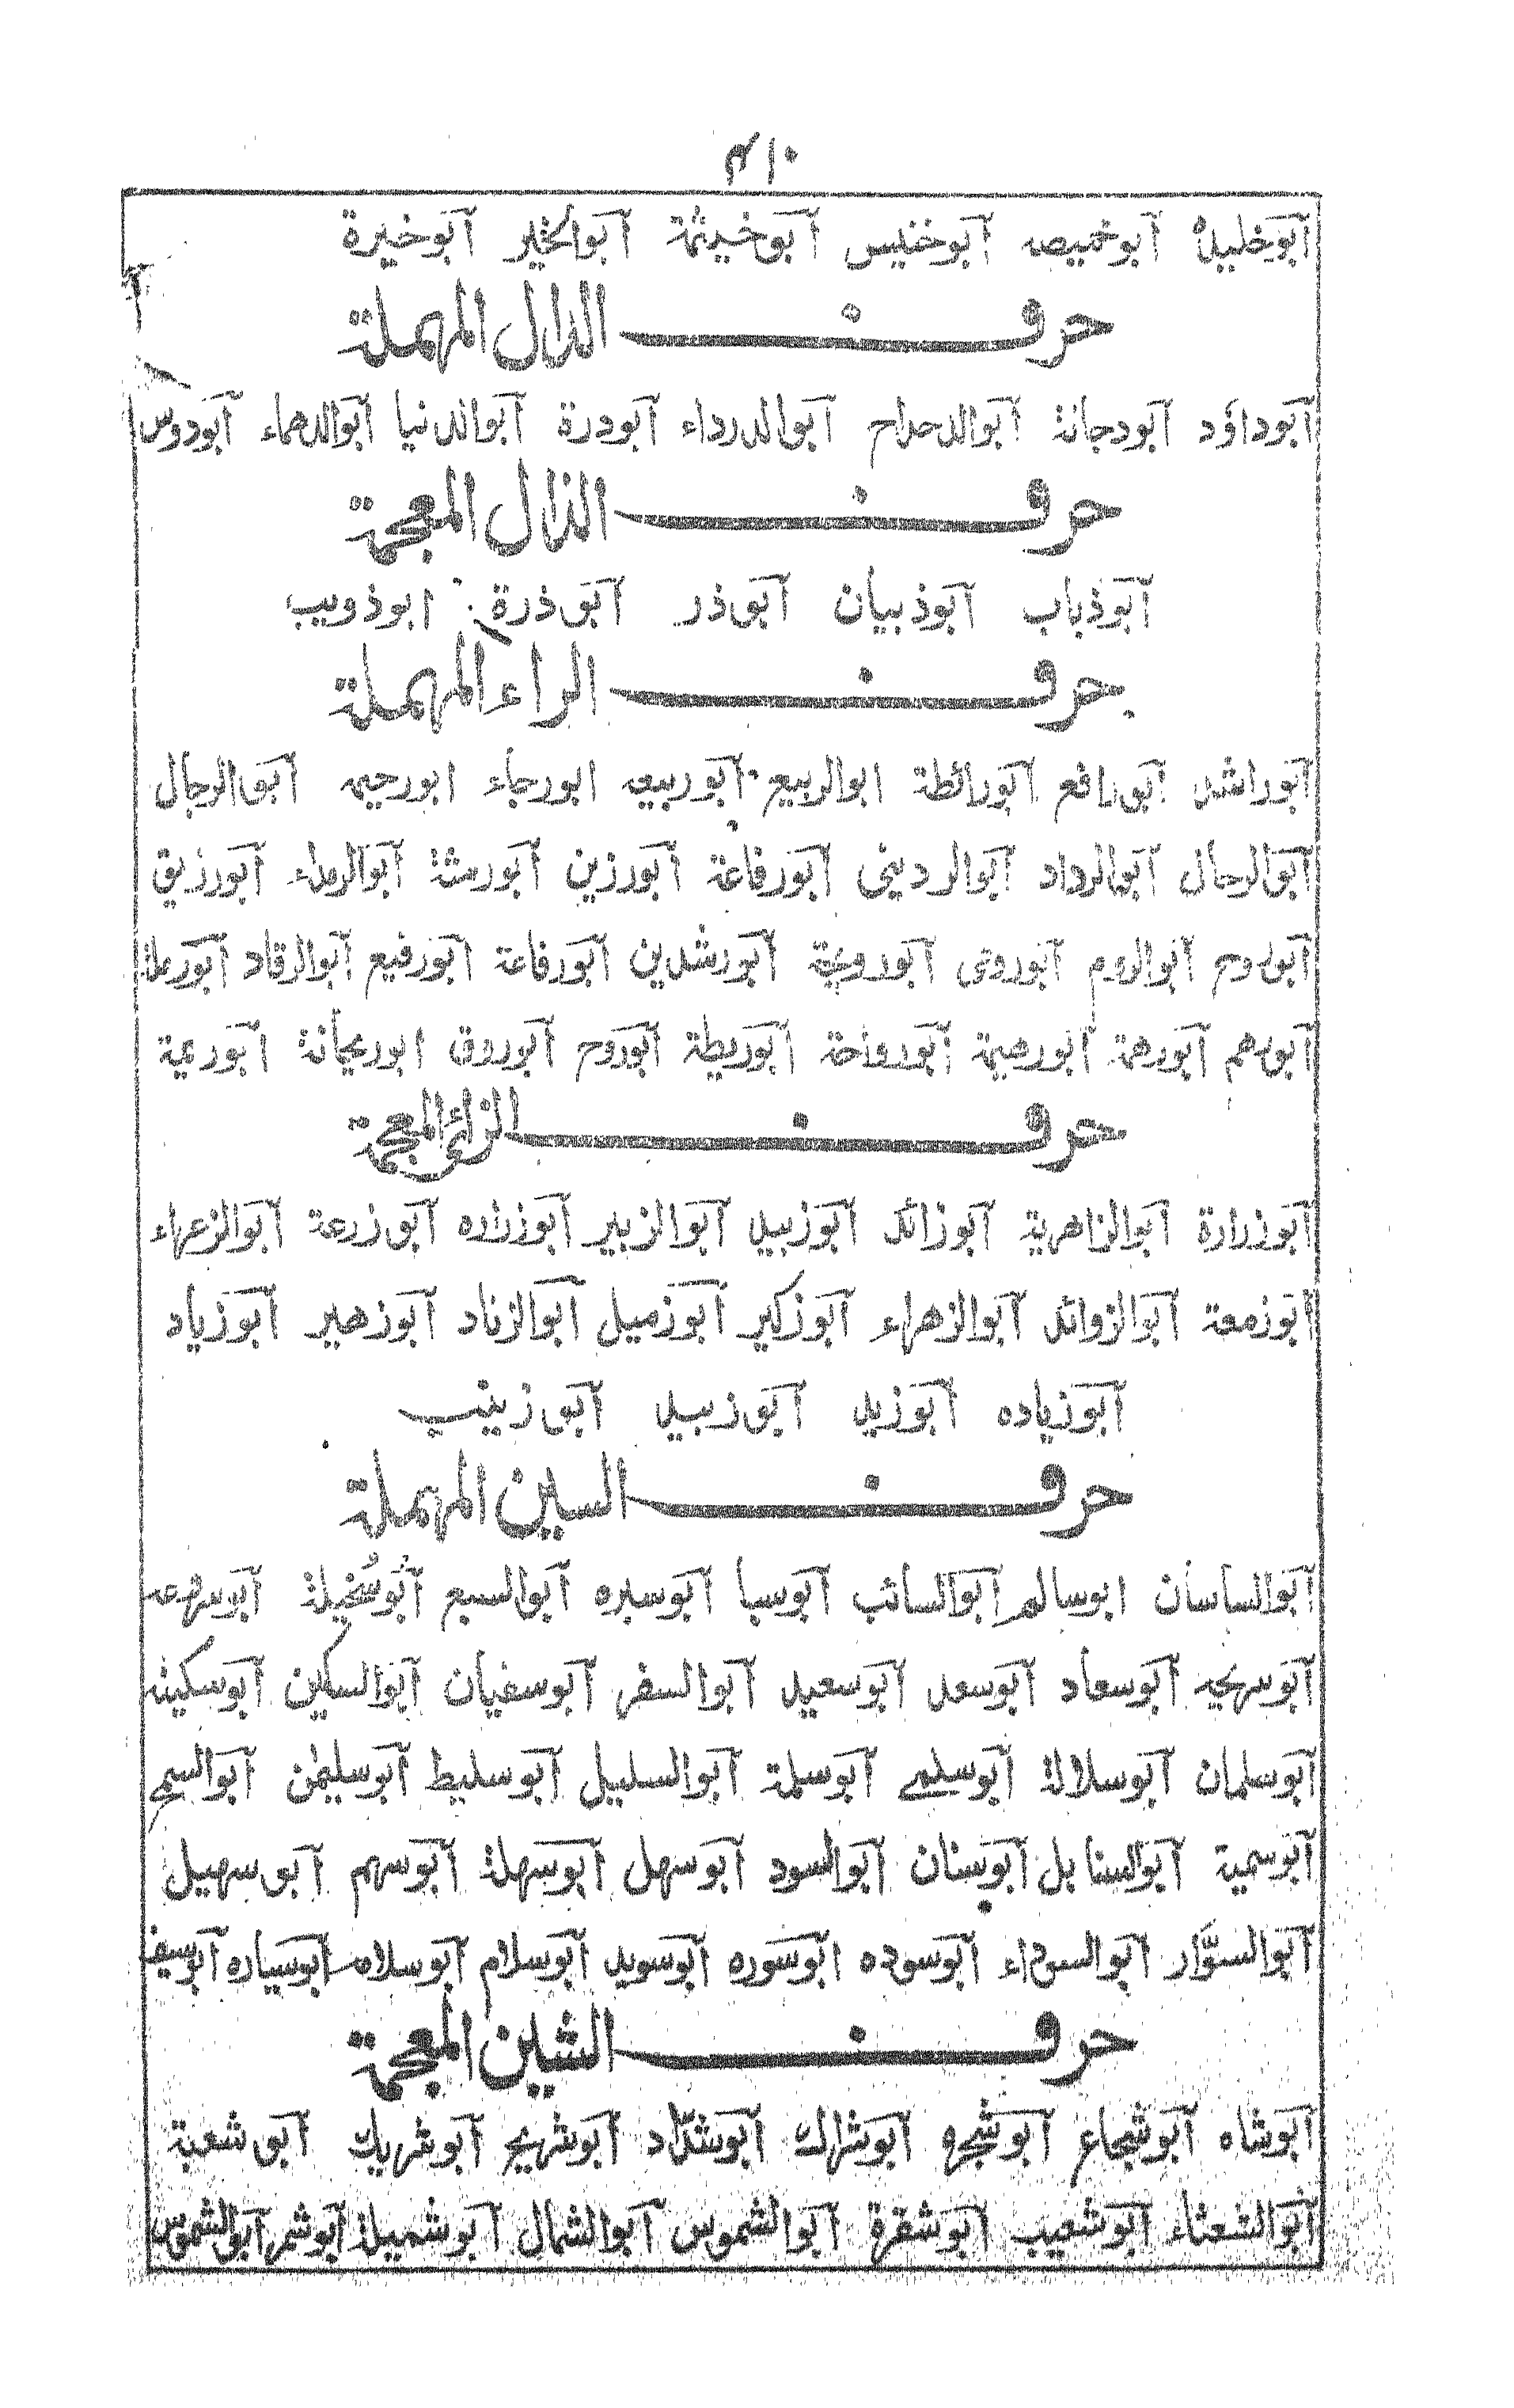 ۳۱۰
ابوخليل ابوخميصه ابوخنيس ابوخيثمة ابوالخير ابوخيرة
حرف الدال المهملة
ابوداؤد ابودجانة ابوالدحداح ابوالدرداء ابودرة ابوالدنيا ابوالدهماء ابودوس
حرف الذال المعجمة
ابوذباب ابوذبيان ابوذر ابوذرة ابوذويب
حرف الراء المهملة
ابوراشد ابورافع ابورائطة ابوالربيع ابوربيعه ابورجاء ابورحيمه ابوالرجال
ابوالرحال ابوالرداد ابوالرديني ابورفاعة ابورزين ابورمثة ابوالرمداء ابورزيق
ابوروح ابوالروم ابورومى ابورويحة ابورشدين ابورفاعة ابورفيع ابوالرقاد ابورملة
ابورهم ابورهمة ابورهيمة ابورواحة ابوريطة ابوروح ابوروق ابوريحانة ابوريمة
حرف الزائ المعجمة
ابوزرارة ابوالزاهرية ابوزائد ابوزبيد ابوالزبير ابوزراره ابوزرعة ابوالزعراء
ابوزمعة ابوالزوائد ابوالزهراء ابوزكير ابوزميل ابوالزناد ابوزهير ابوزياد
ابوزياده ابوزيد ابوزبيد ابوزينب
حرف السين المهملة
ابوالساسان ابوسالم ابوالسائب ابوسبا ابوسبره ابوالسبع ابوسخيلة ابوسروعه
ابوسريحه ابوسعاد ابوسعد ابوسعيد ابوالسفر ابوسفيان ابوالسكين ابوسكينة
ابوسلمان ابوسلالة ابوسلمى ابوسلمة ابوالسليل ابوسليط ابوسليمٰن ابوالسمح
ابوسمية ابوالسنابل ابوسنان ابوالسود ابوسهل ابوسهلة ابوسهم ابوسهيل
ابوالسوَّار ابوالسوداء ابوسوده ابوسوره ابوسويد ابوسلام ابوسلامه ابوسياره ابوسيف
حرف الشين المعجمة
ابوشاه ابوشجاع ابوشجره ابوشراك ابوشدّاد ابوشريح ابوشريك ابوشعبة
ابوالشعثاء ابوشعيب ابوشقرة ابوالشموس ابوالشمال ابوشميلة ابوشمر ابوالشموس